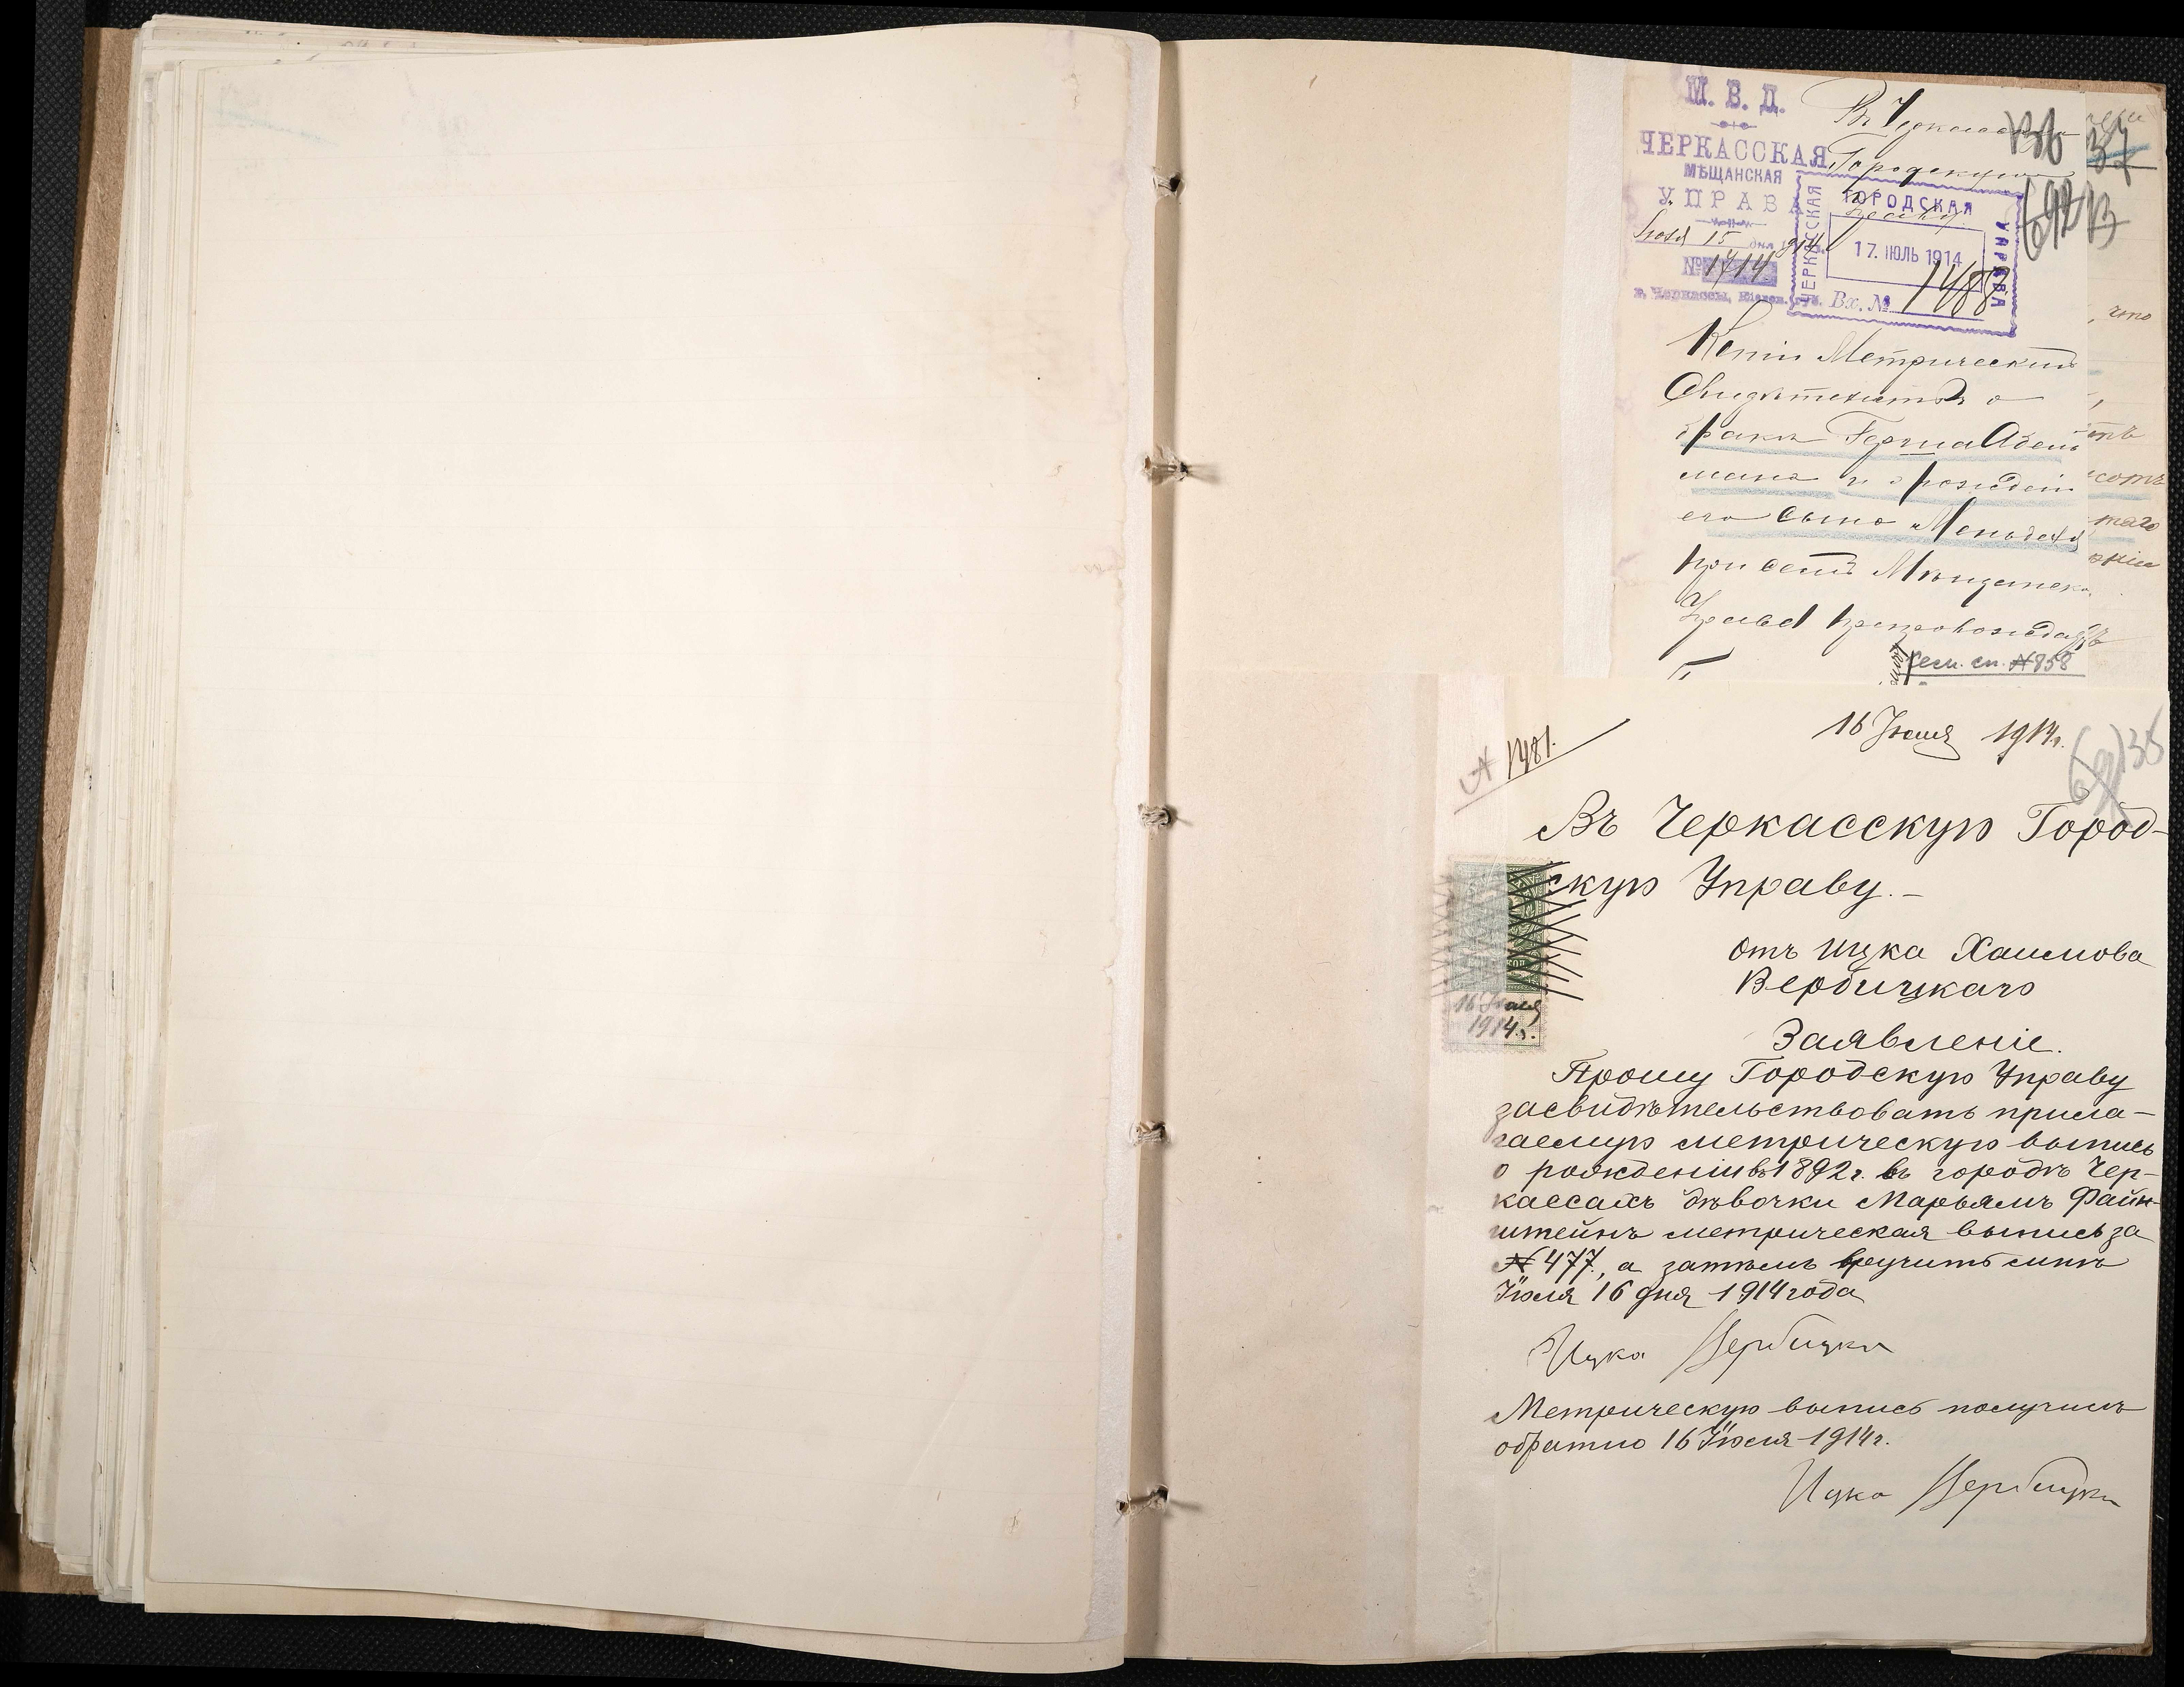 М. В. Д.
ЧЕРКАССКАЯ
МѢЩАНСКАЯ
УПРАВА
Іюля 15 дня 1914
№ 1714
г. Черкассы, Кіевск. губ.
Въ Черкасскую
Городскую
Управу
136
ЧЕРКАССКАЯ ГОРОДСКАЯ УПРАВА
17. ІЮЛЬ 1914
Вх. № 1488
37
Копіи Метрический
Свидѣтельствъ о
бракѣ Герша Адель
мана и о рожденіи
его сына Менделя
при семъ Мѣщанск.
Управа препровождаетъ
сем. сп. № 858
что
сотъ
таго
16 Іюля 1914г.
№ 1481.
138
Въ Черкасскую Город-
скую Управу.-
отъ Ицка Хаимова
Вербицкаго
16 Іюля
1914г.
Заявленіе.
Прошу Городскую Управу
засвидѣтельствовать прила-
гаемую метрическую выпись
о рожденіи въ 1892г. въ городѣ Чер-
кассахъ дѣвочки Марьямъ Файн-
штейнъ метрическая выпись за
№ 477., а затѣмъ вручить мнѣ
Іюля 16 дня 1914 года
Ицка Вербицки
Метрическую выпись получилъ
обратно 16 Іюля 1914г.
Ицка Вербицки